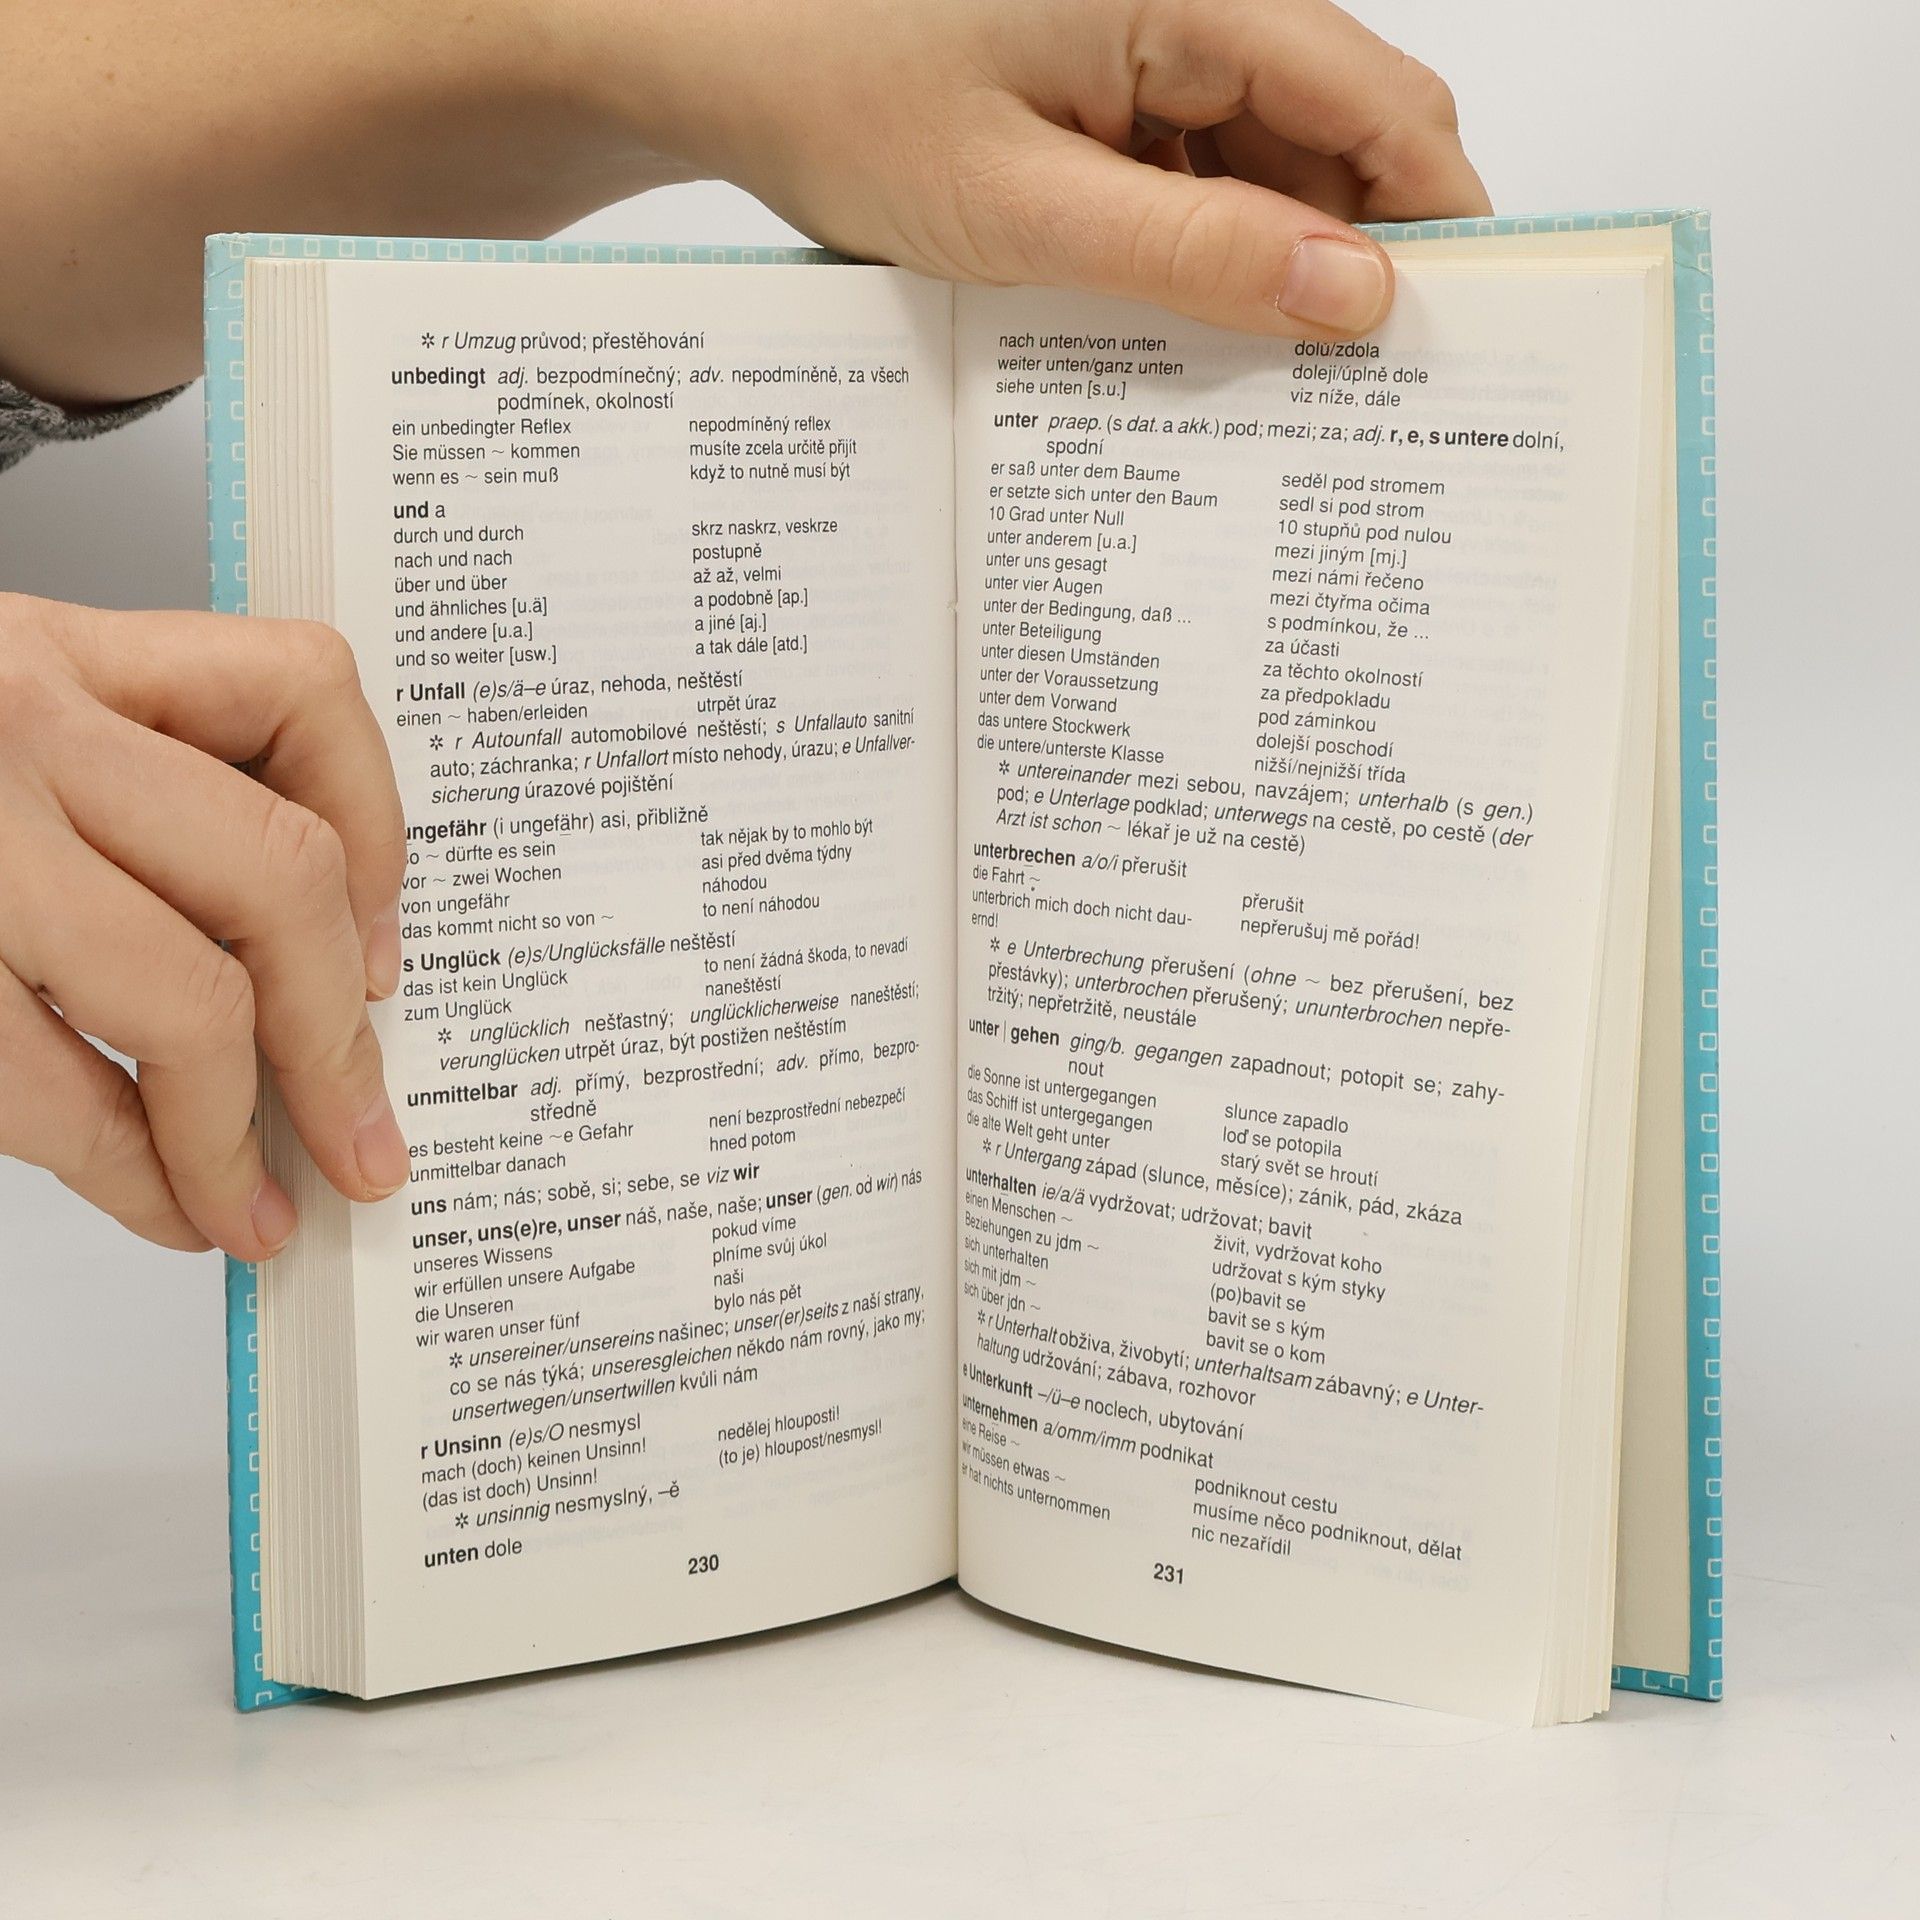 ✲ r Umzug průvod; přestěhování
unbedingt adj. bezpodmínečný; adv. nepodmíněně, za všech
podmínek, okolností
ein unbedingter Reflex nepodmíněný reflex
Sie müssen ~ kommen musíte zcela určitě přijít
wenn es ~ sein muß když to nutně musí být
und a
durch und durch skrz naskrz, veskrze
nach und nach postupně
über und über až až, velmi
und ähnliches [u.ä] a podobně [ap.]
und andere [u.a.] a jiné [aj.]
und so weiter [usw.] a tak dále [atd.]
r Unfall (e)s/ä–e úraz, nehoda, neštěstí
einen ~ haben/erleiden utrpět úraz
✲ r Autounfall automobilové neštěstí; s Unfallauto sanitní
auto; záchranka; r Unfallort místo nehody, úrazu; e Unfallver-
sicherung úrazové pojištění
ungefähr (i ungefähr) asi, přibližně
so ~ dürfte es sein tak nějak by to mohlo být
vor ~ zwei Wochen asi před dvěma týdny
von ungefähr náhodou
das kommt nicht so von ~ to není náhodou
s Unglück (e)s/Unglücksfälle neštěstí
das ist kein Unglück to není žádná škoda, to nevadí
zum Unglück naneštěstí
✲ unglücklich nešťastný; unglücklicherweise naneštěstí;
verunglücken utrpět úraz, být postižen neštěstím
unmittelbar adj. přímý, bezprostřední; adv. přímo, bezpro-
středně
es besteht keine ~e Gefahr není bezprostřední nebezpečí
unmittelbar danach hned potom
uns nám; nás; sobě, si; sebe, se viz wir
unser, uns(e)re, unser náš, naše, naše; unser (gen. od wir) nás
unseres Wissens pokud víme
wir erfüllen unsere Aufgabe plníme svůj úkol
die Unseren naši
wir waren unser fünf bylo nás pět
✲ unsereiner/unsereins našinec; unser(er)seits z naší strany,
co se nás týká; unseresgleichen někdo nám rovný, jako my;
unsertwegen/unsertwillen kvůli nám
r Unsinn (e)s/O nesmysl
mach (doch) keinen Unsinn! nedělej hlouposti!
(das ist doch) Unsinn! (to je) hloupost/nesmysl!
✲ unsinnig nesmyslný, –ě
unten dole
230
nach unten/von unten dolů/zdola
weiter unten/ganz unten doleji/úplně dole
siehe unten [s.u.] viz níže, dále
unter praep. (s dat. a akk.) pod; mezi; za; adj. r, e, s untere dolní,
spodní
er saß unter dem Baume seděl pod stromem
er setzte sich unter den Baum sedl si pod strom
10 Grad unter Null 10 stupňů pod nulou
unter anderem [u.a.] mezi jiným [mj.]
unter uns gesagt mezi námi řečeno
unter vier Augen mezi čtyřma očima
unter der Bedingung, daß ... s podmínkou, že ...
unter Beteiligung za účasti
unter diesen Umständen za těchto okolností
unter der Voraussetzung za předpokladu
unter dem Vorwand pod záminkou
das untere Stockwerk dolejší poschodí
die untere/unterste Klasse nižší/nejnižší třída
✲ untereinander mezi sebou, navzájem; unterhalb (s gen.)
pod; e Unterlage podklad; unterwegs na cestě, po cestě (der
Arzt ist schon ~ lékař je už na cestě)
unterbrechen a/o/i přerušit
die Fahrt ~ přerušit
unterbrich mich doch nicht dau- nepřerušuj mě pořád!
ernd!
✲ e Unterbrechung přerušení (ohne ~ bez přerušení, bez
přestávky); unterbrochen přerušený; ununterbrochen nepře-
tržitý; nepřetržitě, neustále
unter|gehen ging/b. gegangen zapadnout; potopit se; zahy-
nout
die Sonne ist untergegangen slunce zapadlo
das Schiff ist untergegangen loď se potopila
die alte Welt geht unter starý svět se hroutí
✲ r Untergang západ (slunce, měsíce); zánik, pád, zkáza
unterhalten ie/a/ä vydržovat; udržovat; bavit
einen Menschen ~ živit, vydržovat koho
Beziehungen zu jdm ~ udržovat s kým styky
sich unterhalten (po)bavit se
sich mit jdm ~ bavit se s kým
sich über jdn ~ bavit se o kom
✲ r Unterhalt obživa, živobytí; unterhaltsam zábavný; e Unter-
haltung udržování; zábava, rozhovor
e Unterkunft –/ü–e noclech, ubytování
unternehmen a/omm/imm podnikat
eine Reise ~ podniknout cestu
wir müssen etwas ~ musíme něco podniknout, dělat
er hat nichts unternommen nic nezařídil
231